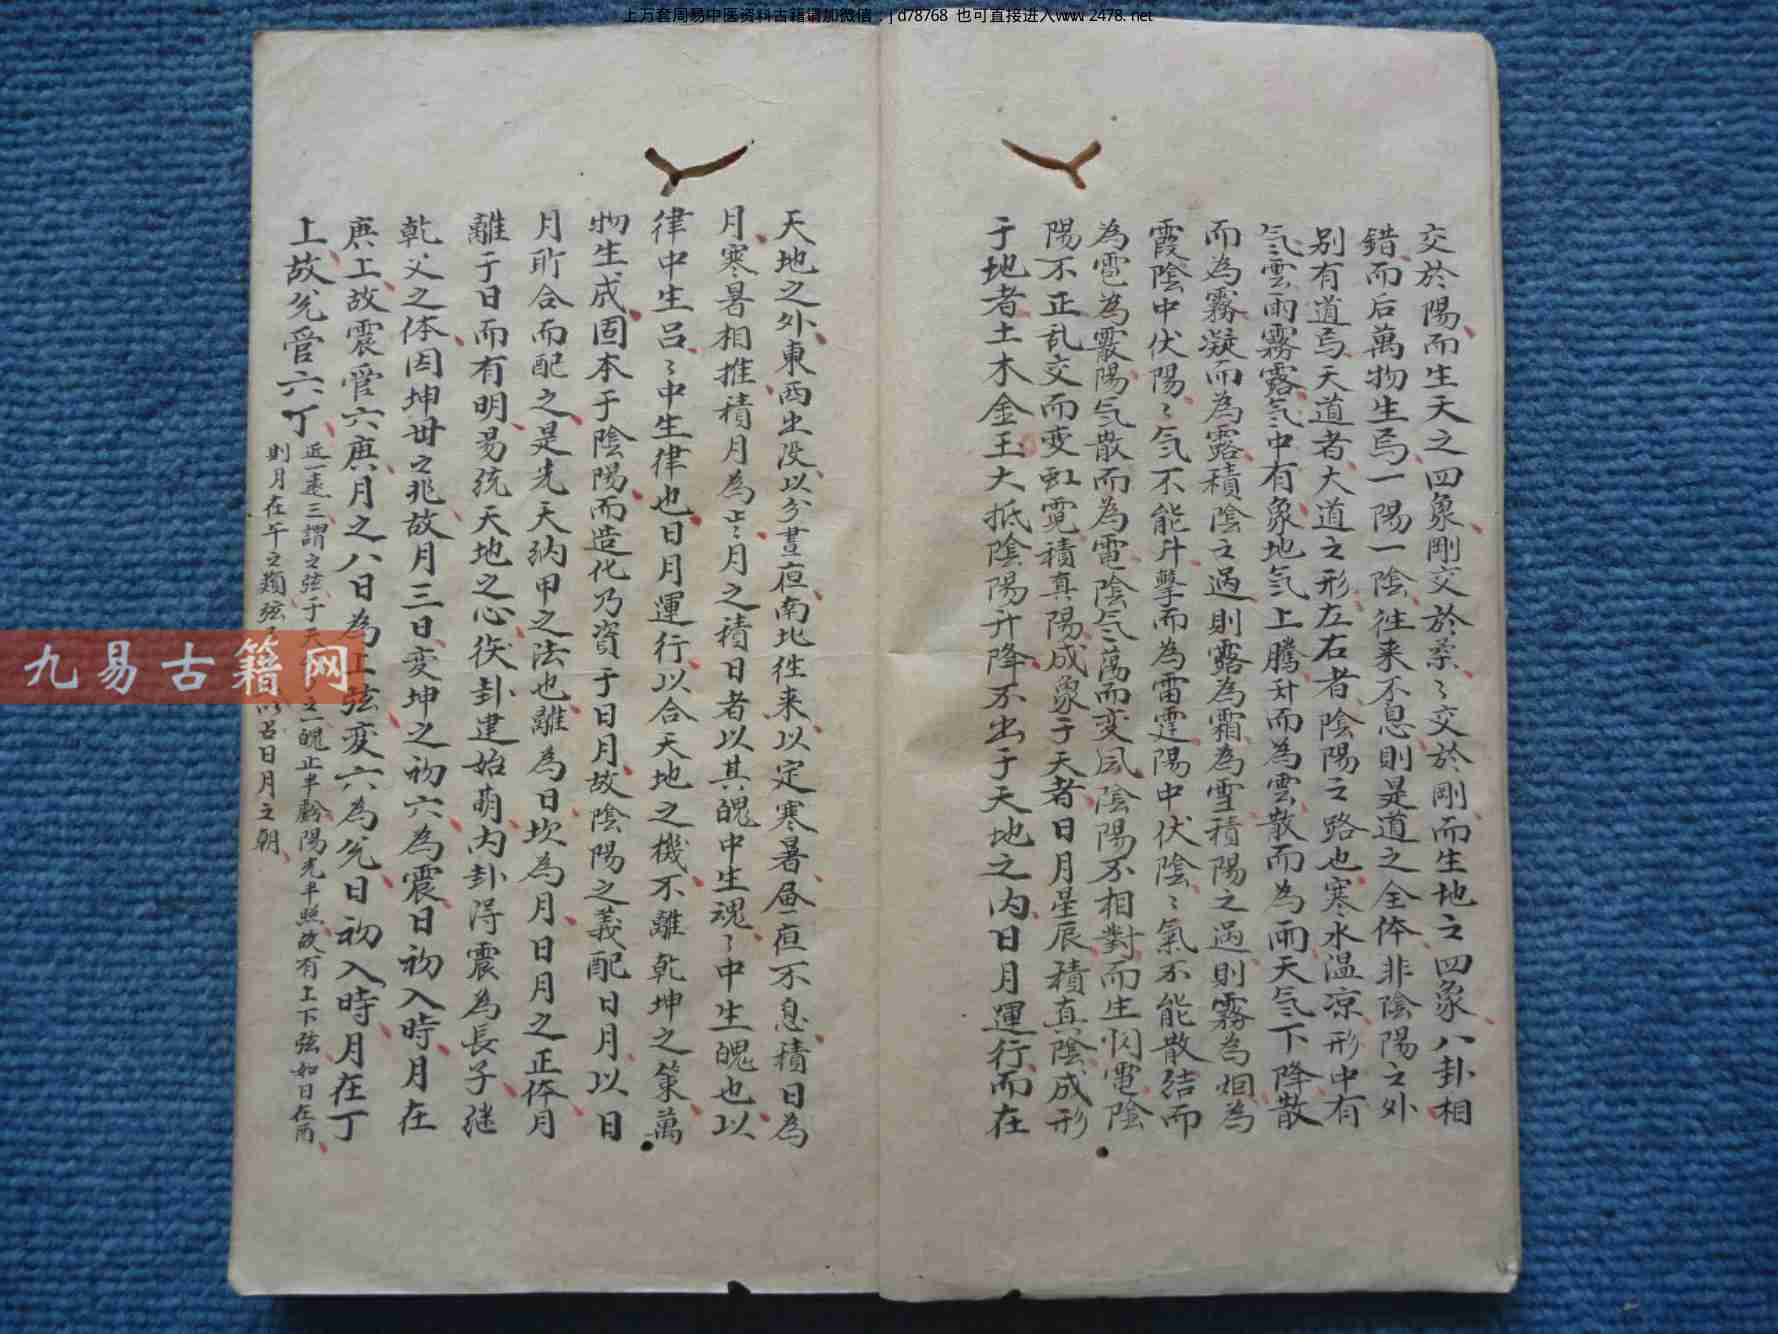 上万套周易中医资料古籍请加微信：jd78768 也可直接进入www.2478.net
交於陽而生天之四象剛交於柔〻交於剛而生地之四象八卦相
錯而后萬物生焉一陽一陰徃来不息則是道之全体非陰陽之外
别有道焉天道者大道之形左右者陰陽之路也寒水温凉形中有
气〻雲雨霧露气中有象地气上騰升而為雲散而為雨天气下降散
而為霧凝而為露積陰之過則露為霜為雪積陽之過則霧為烟為
霞陰中伏陽〻气不能升擊而為雷霆陽中伏陰〻氣不能散结而
為雹為霰陽气散而為電陰气蕩而变風陰陽不相對而生閃電陰
陽不正乱交而变虹霓積真陽成象于天者日月星辰積真陰成形
于地者土木金玉大抵陰陽升降不出于天地之内日月運行而在
天地之外東西出没以分晝夜南北徃来以定寒暑昼夜不息積日為
月寒暑相推積月為歲〻月之積日者以其魄中生魂〻中生魄也以
律中生吕〻中生律也日月運行以合天地之機不離乾坤之策萬
物生成固本于陰陽而造化乃資于日月故陰陽之義配日月以日
月所合而配之是先天納甲之法也離為日坎為月日月之正体月
離于日而有明易统天地之心後卦建始萌内卦得震為長子继
乾父之体因坤毋之兆故月三日変坤之初六為震日初入時月在
庚上故震管六庚月之八日為上弦変六為兊日初入時月在丁
上故兊管六丁
近一遠三謂之弦于天 之一魄止半輪陽光半照故有上下弦如日在酉
則月在午之類弦 以吕日月之朝
九易古籍网